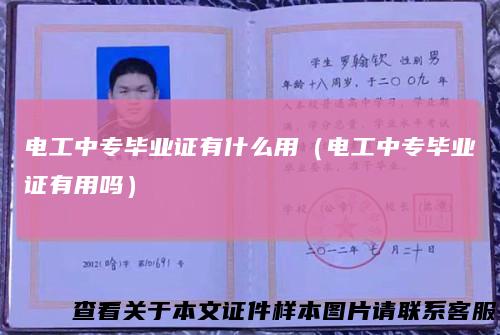 学生 罗翰钦 性别 男
年龄十八周岁，于二〇〇九年
入本校普通高中学习，学生期
满，学分总量、学业水平考试
电工中专毕业证有什么用（电工中专毕业
证有用吗）
毕业要求，准予毕业。
学校（公章） 校长（签章）
2012（哈）字 第101691 号
二〇一二年 七 月 二十 日
查看关于本文证件样本图片请联系客服